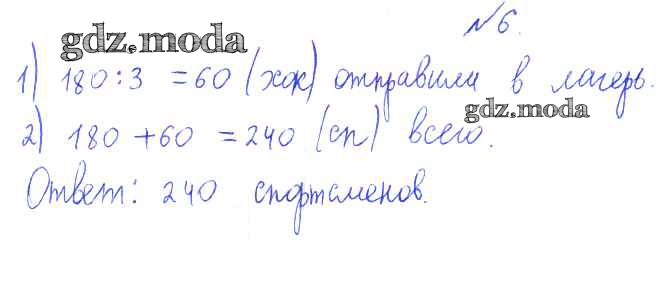 №6.
gdz.moda
1) 180:3 =60 (хок) отправили в лагерь.
gdz.moda
2) 180 +60 =240 (сп) всего.
Ответ: 240 спортсменов.